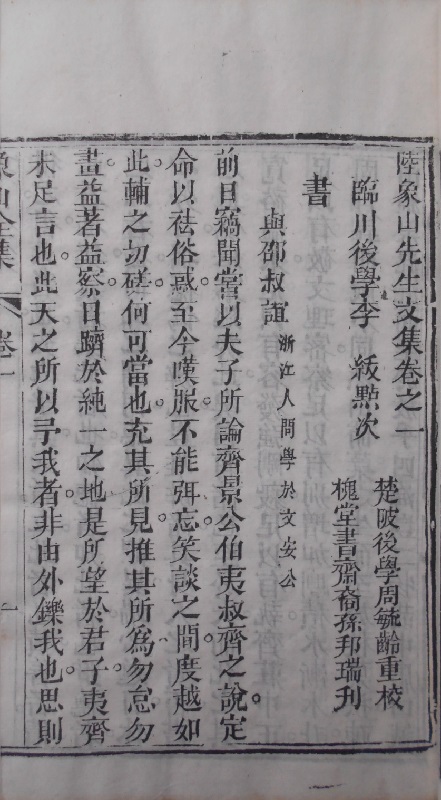 陸象山先生文集卷之一
臨川後學李　紱點次
楚陂後學周毓齡重校
槐堂書齋裔孫邦瑞刋
書
與邵叔誼 浙江人問學於文安公
前日竊聞嘗以夫子所論齊景公伯夷叔齊之說定
命以祛俗惑至今嘆服不能弭忘笑談之間度越如
此輔之切磋何可當也充其所見推其所為勿怠勿
畫益著益察日躋於純一之地是所望於君子夷齊
未足言也此天之所以予我者非由外鑠我也思則
象山全集
卷一
一